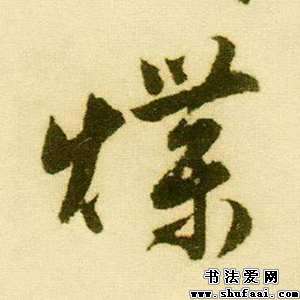 煠
书法爱网
www.shufaai.com